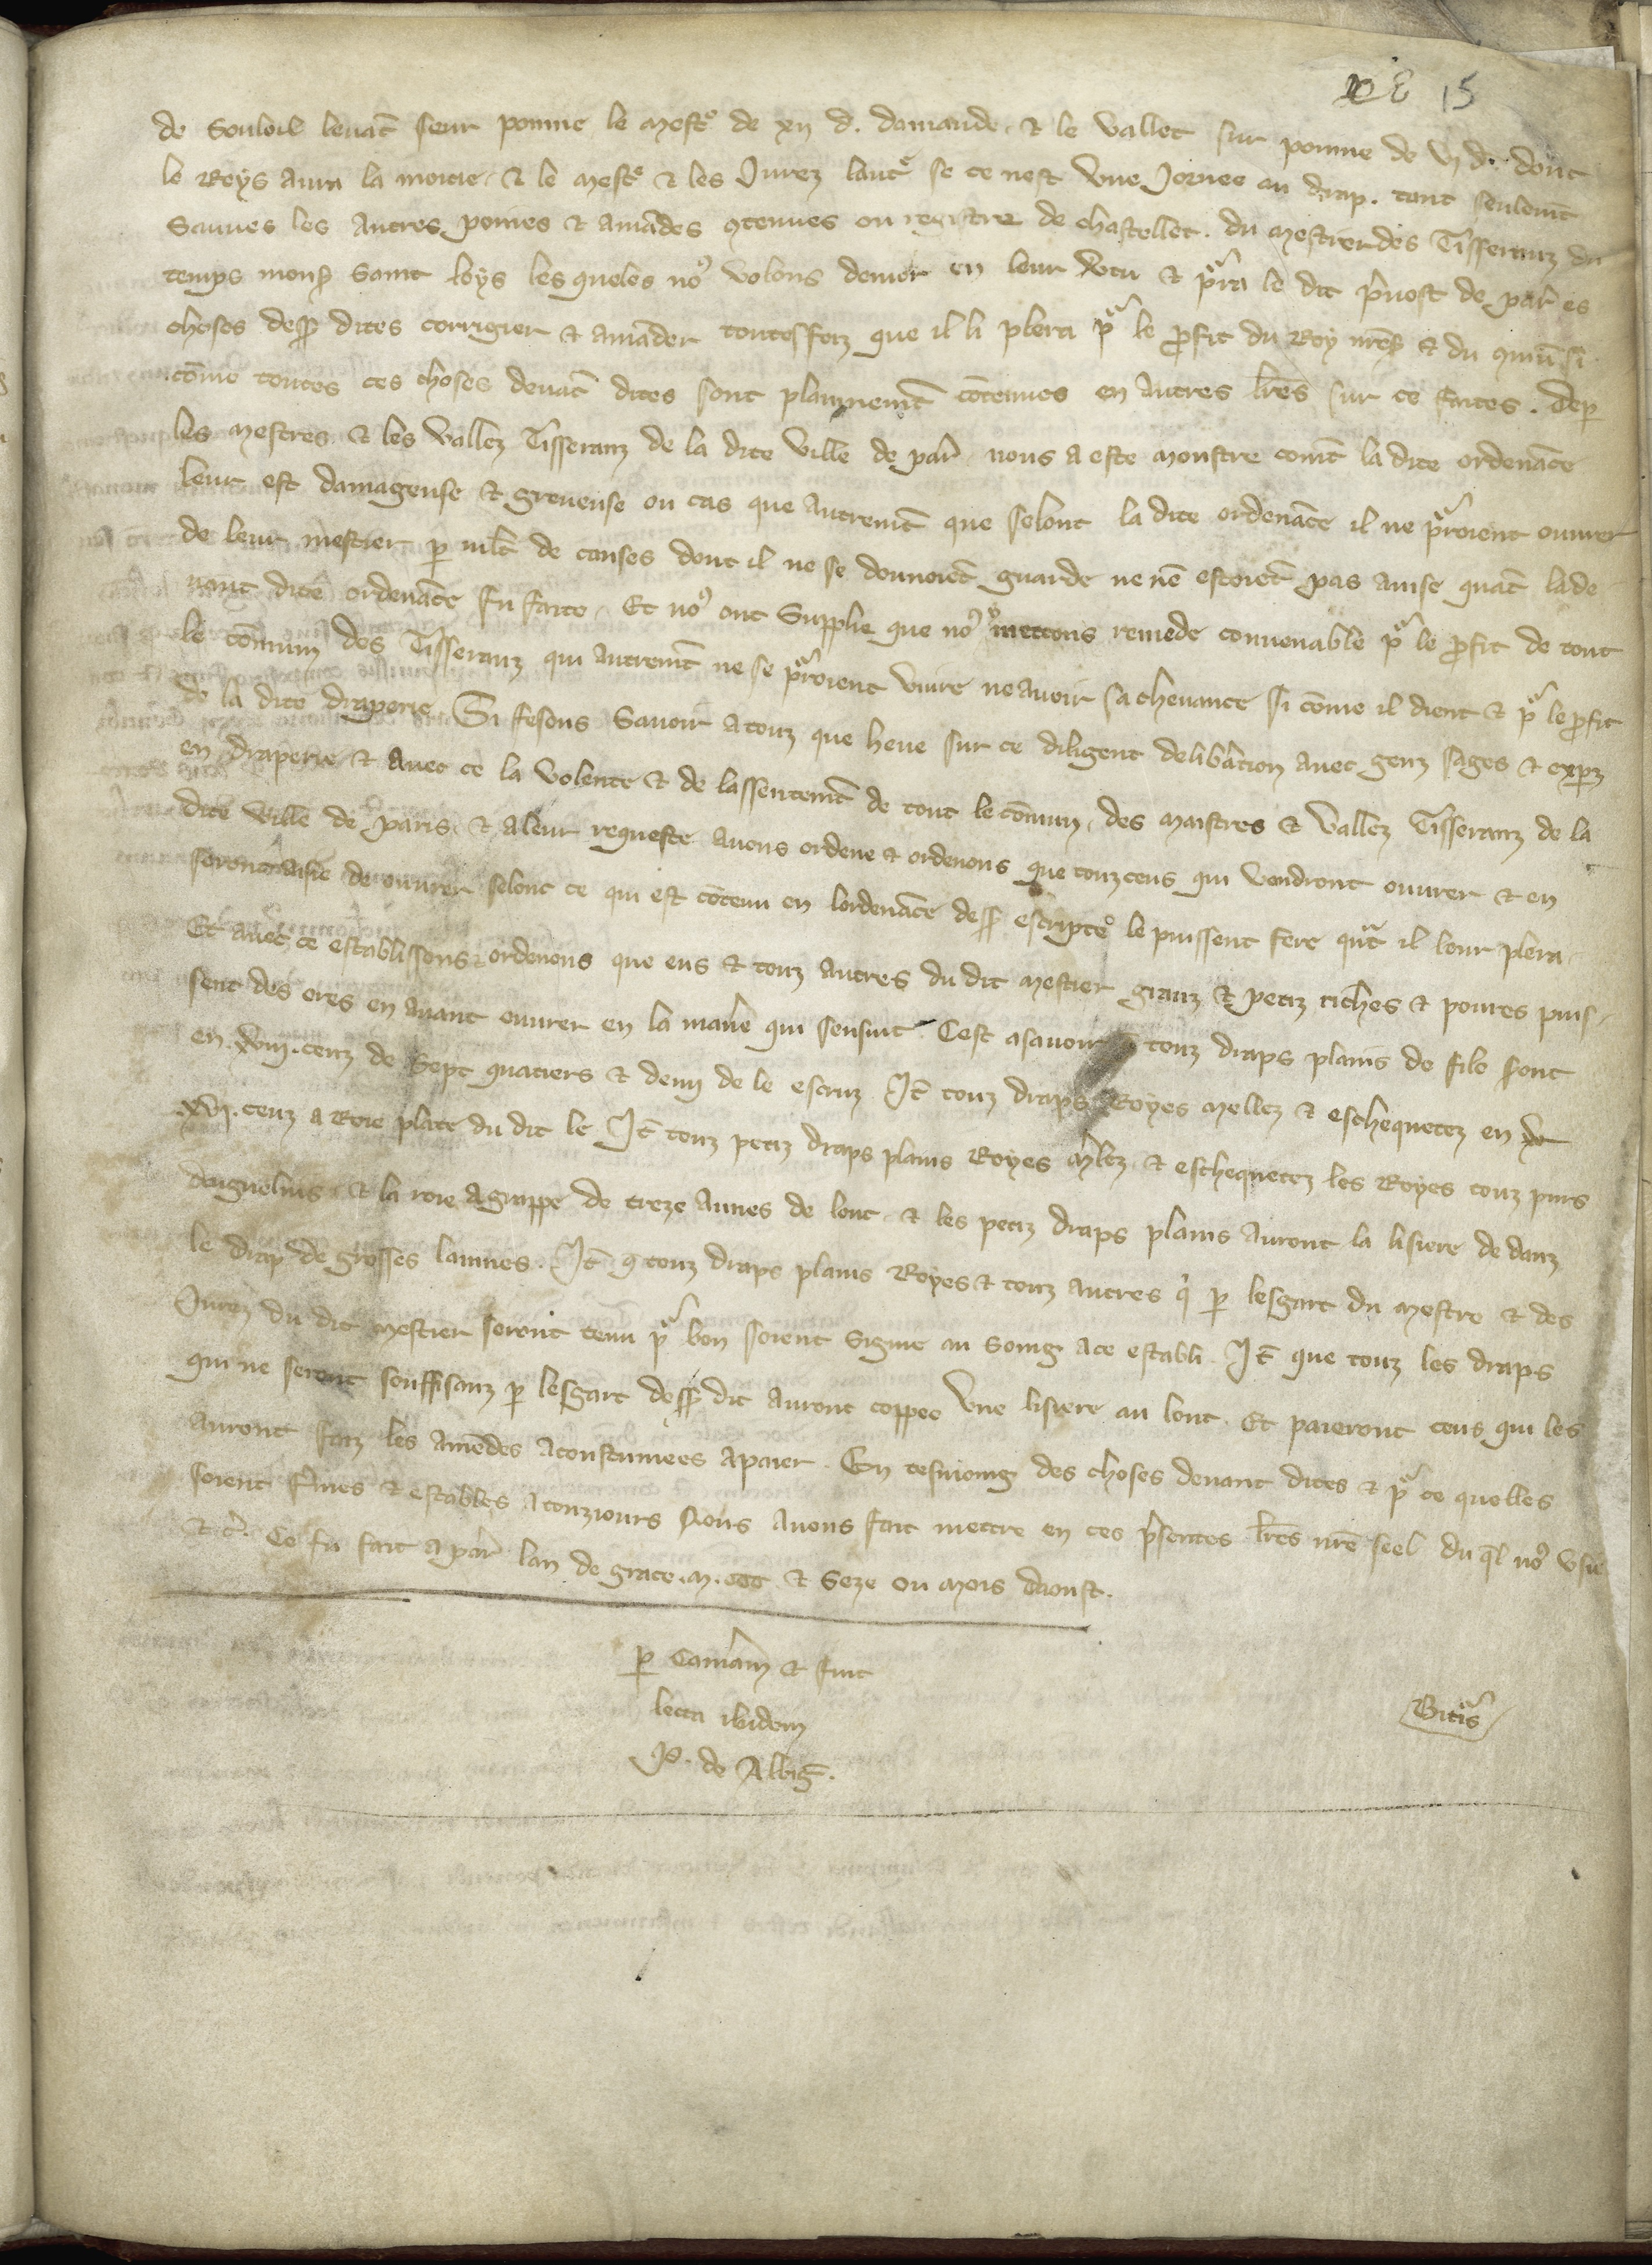 15
de Souloil levāt seur poinne le mestͤ de xij d. damande ⁊ le vallet sur poinne de vj d. dont
le Roys aura la moitie ⁊ le mestͤ ⁊ les Jurez lautͤ se ce nest une Jornee au drap. tant seulemt̄
Sauves les autres poines ⁊ amādes ꝯtenues ou registre de chastellet. du mestier des Tisseranz du
temps mons̄ Saint loys les queles noꝰ volons demor̄ en leur v̄tu ⁊ pͬra le dit p̄vost de par̄ es
choses dess̄ dites corrigier ⁊ amāder toutesfoiz que il li plera pͬ le ꝓfit du Roy nr̄es̄ ⁊ du ꝯmū si
cōme toutes ces choses devāt dites sont plainnemt̄ cōtenues en autres lr̄es sur ce faites. Dep
les mestres ⁊ les vallez Tisseranz de la dite ville de par̄ nous a este monstre comt̄ la dite ordenāce
leur est damageuse ⁊ greveuse ou cas que autremt̄ que selont la dite ordenāce il ne pͬroient ouvrer
de leur mestier ꝑ mlt̄ de causes dont il ne se donnoiēt guarde ne nē estoiēt pas avise quāt la de
vant dite ordenāce fu faite. Et noꝰ ont Supplie que noꝰ mettons remede convenable pͬ le ꝓfit de tout
le cōmun des Tisseranz qui autremt̄ ne se pͬroient vivre ne avoir sa chevance si cōme il dient ⁊ pͬ le ꝓfit
de la dite draperie. Si fesons savoir a touz que heue sur ce diligent delib̄ation avec genz sages ⁊ expz
en draperie ⁊ avec ce la volente ⁊ de lassentemt̄ de tout le cōmun, des maistres ⁊ vallez Tisseranz de la
dite ville de paris ⁊ a leur requeste avons ordene ⁊ ordenons que touz ceus qui vendront ouvrer ⁊ en
seront aise de ouvrer selont ce qui est cōtenu en lordenāce dess̄ escripte le puissent fere qn̄t il leur plera
Et avec ce establissons ⁊ ordenons que eus ⁊ touz autres du dit mestier granz ⁊ petiz riches ⁊ poures puis
sent des ores en avant ouvrer en la man̄e qui sensuit Cest asavoir touz draps plains de file sont
en .xviij. cenz de sept quatiers ⁊ demj de le escruz Itē touz draps Royes mellez ⁊ eschequetez en
.xvj. cenz a Roie plate du dit le Itē touz petiz draps plains Royes mellez ⁊ eschequetez les Royes touz purs
daignelins ⁊ la roie agrappe de treze aunes de lonc ⁊ les petiz draps plains auront la lisiere de danz
le drap de grosses lainnes. Itē q̄ touz draps plains Royes ⁊ touz autres qi ꝑ lesgart du mestre ⁊ des
Jurez du dit mestier seront tenu pͬ bon soient signie au soing a ce establi. Itē que touz les draps
qui ne seront souffisanz ꝑ lesgart dess̄ dit auront coppee une lisiere au lonc. Et paieront ceus qui les
auront faiz les amēdes acoustumees a paier. En tesmoing des choses devant dites ⁊ pͬ ce quelles
soient fmes ⁊ estables a touzjours Nous avons fait mettre en ces p̄sentes lr̄es nr̄e seel du q̄l noꝰ usie
⁊ c̄. Ce fu fait a par̄ lan de grace .m. ccc ⁊ seze ou mois daoust.
ꝑ Cam̄am ⁊ fuit
lecta ibidem
P. de Albiḡ.